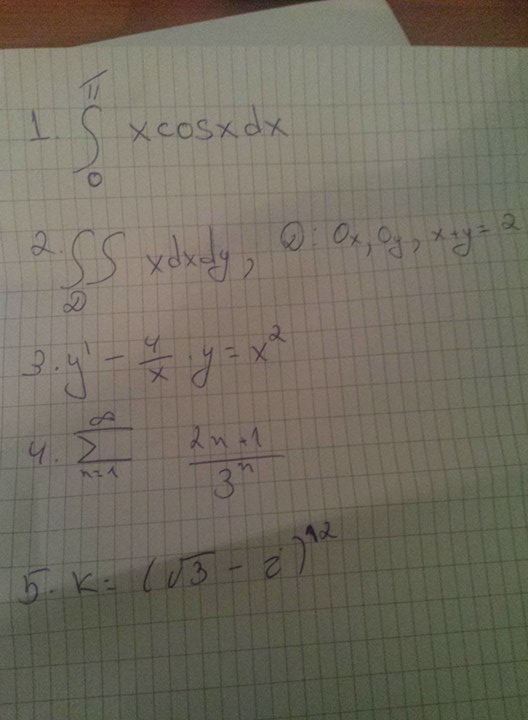 1. ∫₀^π x cos x dx
2. ∬_D x dx dy, D: Ox, Oy, x+y=2
3. y' - 4/x · y = x²
4. ∑_{n=1}^∞ (2n+1)/3ⁿ
5. K = (√3 - i)¹²